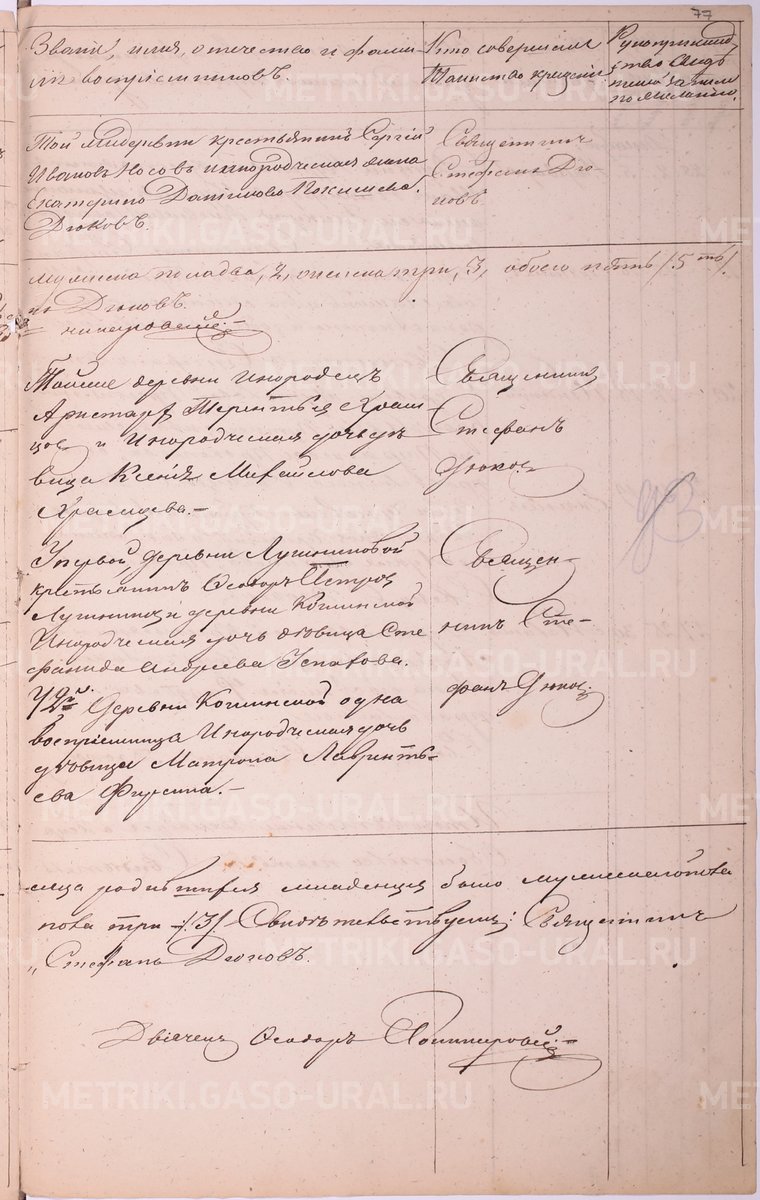 77
Званiе, имя, отечество и фами-
лiя воспрiемниковъ.
Кто совершилъ
таинство крещенiя
Рукоприклад
ство свидѣ
телей записи
по желанiю.
Той же деревни крестьянинъ Сергiй
Ивановъ Носовъ и инородческая жена
Екатерина Данiилова
Дюковъ.
Священникъ
Стефанъ Дю-
ковъ.
мужеска пола два, 2, женска три, 3, обоего пять /5ть/.
Дюковъ.
Тойже деревни инородецъ
Аристархъ Терентьевъ Храм-
цовъ и Инородческая дочь дѣ
вица Ксенiя Михайлова
Храмцова.-
Священникъ
Стефанъ
Дюковъ
У первой деревни Лушниковой
крестьянинъ Ѳеодоръ Петровъ
Лушниковъ и деревни Кошинской
Инородческая дочь дѣвица Сте
фанида Андреева
У 2й. Деревни Кошинской одна
воспрiемница Инородческая дочь
дѣвица Матрона Лаврентье-
ева Фирсина.-
Священ-
никъ Сте-
фанъ Дюковъ
сяца родившихся младенцевъ было мужескаго пола
пола три /3/ Свидѣтельствуемъ: Священникъ
Стефанъ Дюковъ.
Дьячекъ Ѳеодоръ
METRIKI.GASO-URAL.RU